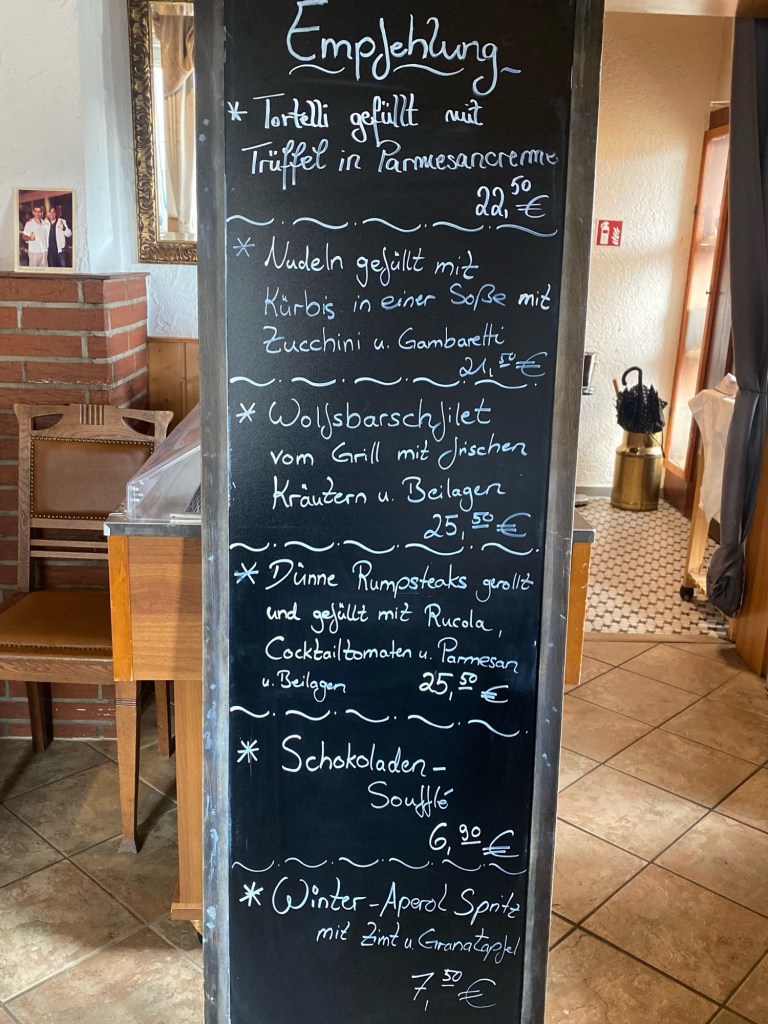 Empfehlung
* Tortelli gefüllt mit
Trüffel in Parmesancreme
22,50 €
* Nudeln gefüllt mit
Kürbis in einer Soße mit
Zucchini u. Gambaretti
21,50 €
* Wolfsbarschfilet
vom Grill mit frischen
Kräutern u. Beilagen
25,50 €
* Dünne Rumpsteaks gerollt
und gefüllt mit Rucola,
Cocktailtomaten u. Parmesan
u. Beilagen 25,50 €
* Schokoladen-
Soufflé
6,90 €
* Winter-Aperol Spritz
mit Zimt u Granatapfel
7,50 €